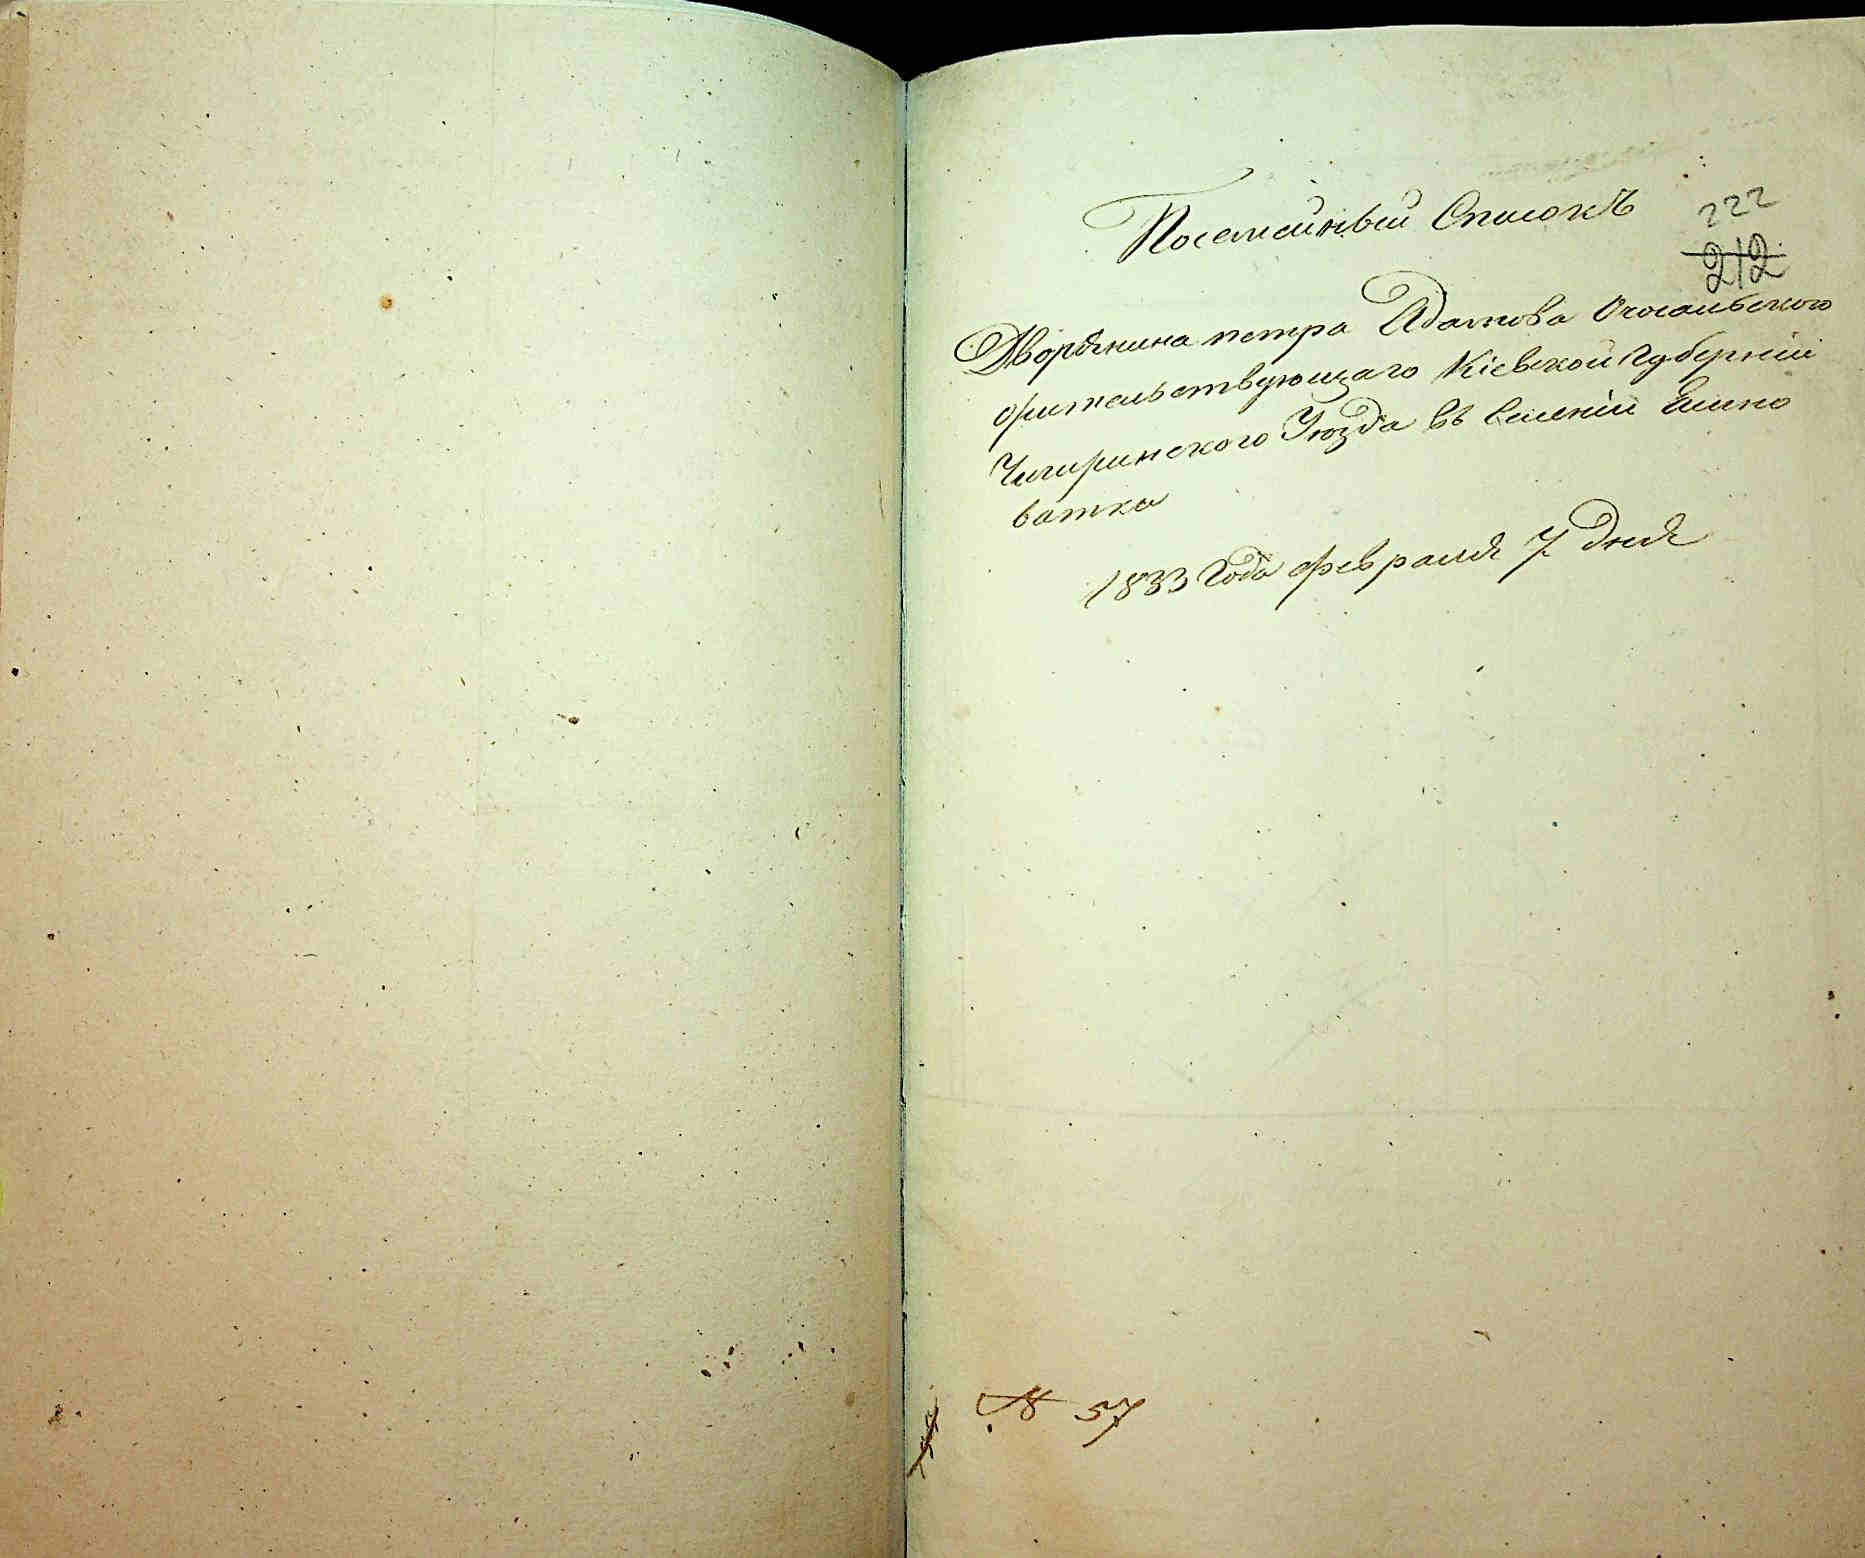 Посемейный Списокъ
222
212
Дворянина петра Адамова
жительствующаго Кіевской губерніи
Чигиринского Уюзда въ селеніи Елино
ватки
1833 Года февраля 7 дня
№ 57